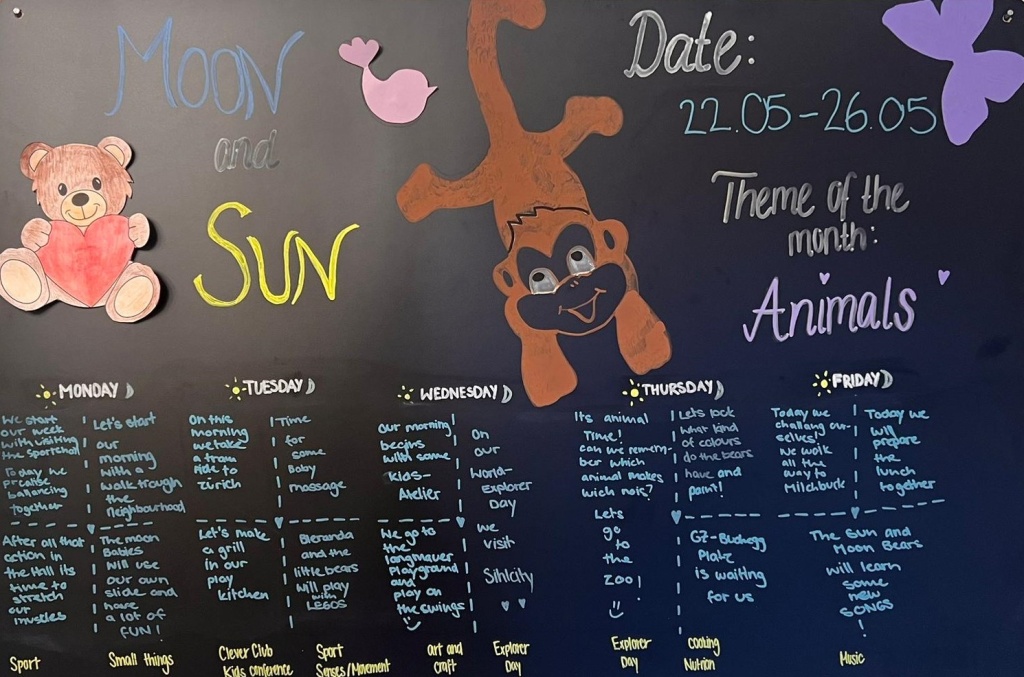 Moon
and
Sun
Date:
22.05-26.05
Theme of the
month:
Animals
MONDAY
We start
our week
with visiting
the sportshall
Today we
practise
balancing
together
After all that
action in
the Hall its
time to
stretch
our
muscles
Sport
Let's start
our
morning
with a
walk trough
the
neighbourhood
The moon
Babies
will use
our own
slide and
have
a lot of
FUN!
Small things
TUESDAY
On this
morning
we take
a tram
Ride to
Zürich
Let's make
a grill
in our
play
kitchen
Clever Club
Kids Conference
Time
for
some
Baby
massage
and the
little bears
will play
with
LEGOS
Sport
Senses/Movement
WEDNESDAY
Our morning
begins
with some
Kids-
Atelier
We go to
the
langmauer
Playground
and
play on
the swings
art and
craft
On
our
World-
Explorer
Day
we
visit
Sihlcity
Explorer
Day
THURSDAY
Its animal
Time!
can we remem-
ber which
animal makes
wich nois?
Lets
go
to
the
Zoo!
Explorer
Day
Lets look
what kind
of colours
do the bears
have and
paint!
GZ-Buchegg
Platz
is waiting
for us
cooking
Nutrion
FRIDAY
Today we
challang our-
selves!
We walk
all the
way to
Milchbuck
Today we
will
prepare
the
lunch
together
The Sun and
Moon Bears
will learn
some
new
SONGS
!
Music